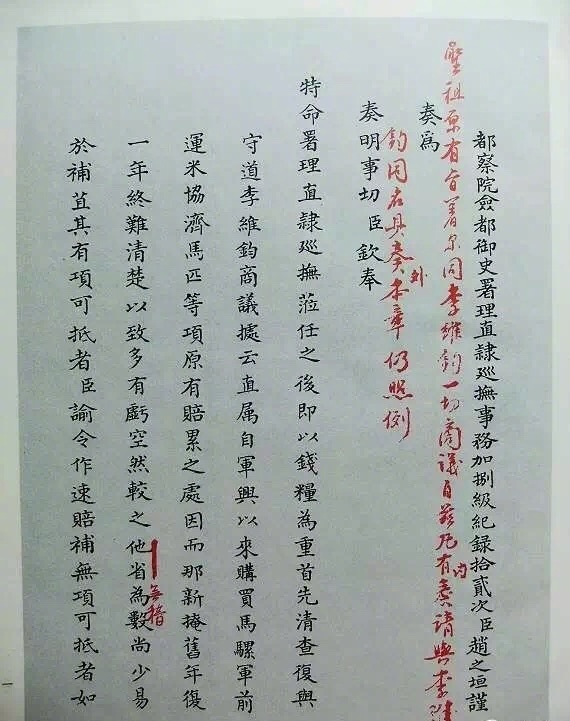 都察院僉都御史署理直隸巡撫事務加捌級紀錄拾貳次臣趙之垣謹
聖祖原有旨著爾同李維鈞一切商議自茲凡有內奏請與李維
奏為
鈞同名具奏外本章仍照例
奏明事切臣欽奉
特命署理直隸巡撫蒞任之後即以錢糧為重首先清查復與
守道李維鈞商議據云直属自軍興以來購買馬騾軍前
運米協濟馬匹等項原有賠累之處因而那新掩舊年復
一年終難清楚以致多有虧空然較之他省為數尚少易
無稽
於補苴其有項可抵者臣諭令作速賠補無項可抵者如